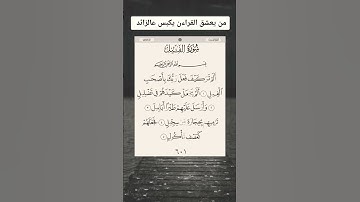 من يعشق القراءن يكبس عالزائد
سُورَةُ الفِيلِ
بِسْمِ ٱللَّهِ ٱلرَّحْمَٰنِ ٱلرَّحِيمِ
أَلَمْ تَرَ كَيْفَ فَعَلَ رَبُّكَ بِأَصْحَٰبِ
ٱلْفِيلِ ١ أَلَمْ يَجْعَلْ كَيْدَهُمْ فِى تَضْلِيلٍ
٢ وَأَرْسَلَ عَلَيْهِمْ طَيْرًا أَبَابِيلَ ٣
تَرْمِيهِم بِحِجَارَةٍ مِّن سِجِّيلٍ ٤ فَجَعَلَهُمْ
كَعَصْفٍ مَّأْكُولٍ ٥
٦٠١